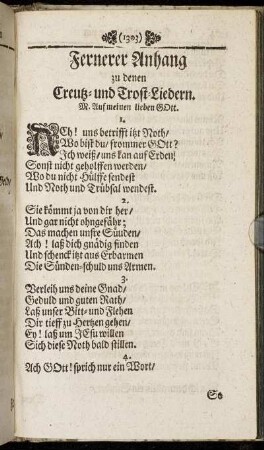 (1303)
Fernerer Anhang
zu denen
Creutz- und Trost-Liedern.
M. Auf meinen lieben GOtt.
1.
ACh! uns betrifft itzt Noth/
Wo bist du/ frommer GOtt?
Ich weiß/ uns kan auf Erden/
Sonst nicht geholffen werden/
Wo du nicht Hülffe sendest
Und Noth und Trübsal wendest.
2.
Sie kömmt ja von dir her/
Und gar nicht ohngefähr;
Das machen unsre Sünden/
Ach! laß dich gnädig finden
Und schenck itzt aus Erbarmen
Die Sünden-schuld uns Armen.
3.
Verleih uns deine Gnad/
Geduld und guten Rath/
Laß unser Bitt- und Flehen
Dir tieff zu Hertzen gehen/
Ey! laß um JEsu willen
Sich diese Noth bald stillen.
4.
Ach GOtt! sprich nur ein Wort/
So